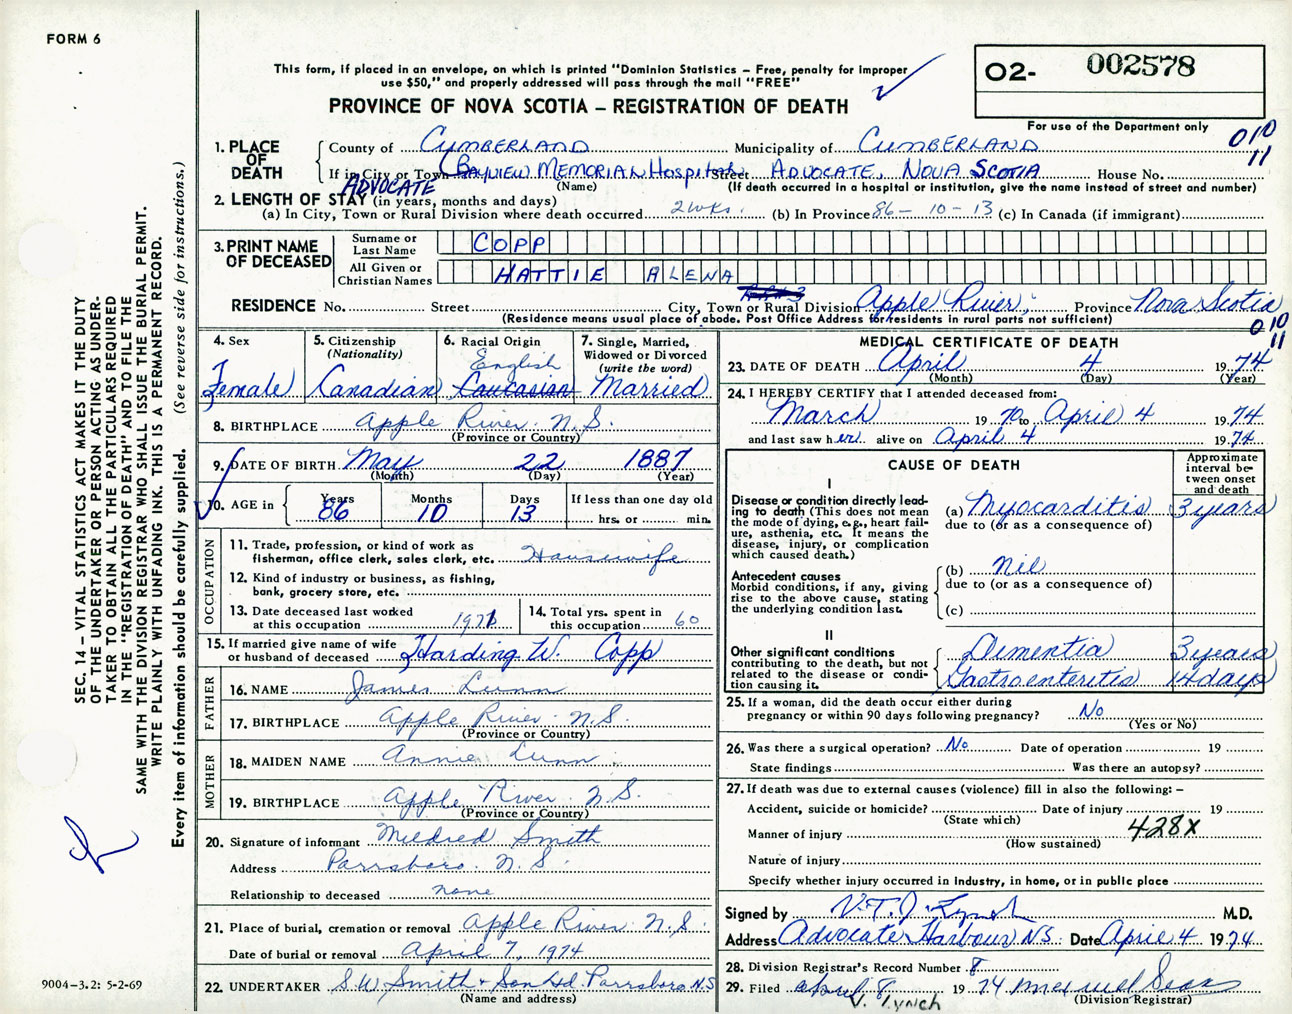 FORM 6
This form, if placed in an envelope, on which is printed "Dominion Statistics – Free, penalty for improper
use $50," and properly addressed will pass through the mail "FREE"
PROVINCE OF NOVA SCOTIA – REGISTRATION OF DEATH
O2- 002578
For use of the Department only
010
11
1. PLACE OF DEATH County of CUMBERLAND Municipality of CUMBERLAND
If in City or Town (BAYVIEW MEMORIAL Hospital Street ADVOCATE, NOVA SCOTIA House No.
ADVOCATE (Name) (If death occurred in a hospital or institution, give the name instead of street and number)
2. LENGTH OF STAY (in years, months and days)
(a) In City, Town or Rural Division where death occurred 2 wks. (b) In Province 86-10-13 (c) In Canada (if immigrant)
3. PRINT NAME OF DECEASED
Surname or Last Name COPP
All Given or Christian Names HATTIE ALENA
RESIDENCE No. Street City, Town or Rural Division Apple River, Province Nova Scotia
(Residence means usual place of abode. Post Office Address for residents in rural parts not sufficient)
010
11
4. Sex Female
5. Citizenship (Nationality) Canadian
6. Racial Origin English Caucasian
7. Single, Married, Widowed or Divorced (write the word) Married
8. BIRTHPLACE Apple River N.S.
(Province or Country)
9. DATE OF BIRTH May 22 1887
(Month) (Day) (Year)
10. AGE in Years 86 Months 10 Days 13 If less than one day old
hrs. or min.
OCCUPATION
11. Trade, profession, or kind of work as
fisherman, office clerk, sales clerk, etc. Housewife
12. Kind of industry or business, as fishing,
bank, grocery store, etc.
13. Date deceased last worked
at this occupation 1971
14. Total yrs. spent in
this occupation 60
15. If married give name of wife
or husband of deceased Harding W. Copp
FATHER
16. NAME James Lunn
17. BIRTHPLACE Apple River N.S.
(Province or Country)
MOTHER
18. MAIDEN NAME Annie Lunn
19. BIRTHPLACE Apple River N.S.
(Province or Country)
20. Signature of informant Mildred Smith
Address Parrsboro N.S.
Relationship to deceased none
21. Place of burial, cremation or removal Apple River N.S.
Date of burial or removal April 7, 1974
22. UNDERTAKER S.W. Smith & Son Ltd. Parrsboro N.S
(Name and address)
MEDICAL CERTIFICATE OF DEATH
23. DATE OF DEATH April 4 1974
(Month) (Day) (Year)
24. I HEREBY CERTIFY that I attended deceased from:
March 1970 to April 4 1974
and last saw her alive on April 4 1974
CAUSE OF DEATH
Approximate
interval be-
tween onset
and death
I
Disease or condition directly lead-
ing to death (This does not mean
the mode of dying, e.g., heart fail-
ure, asthenia, etc. It means the
disease, injury, or complication
which caused death.)
(a) Myocarditis 3 years
due to (or as a consequence of)
Antecedent causes
Morbid conditions, if any, giving
rise to the above cause, stating
the underlying condition last.
(b) Nil
due to (or as a consequence of)
(c)
II
Other significant conditions
contributing to the death, but not
related to the disease or condi-
tion causing it.
Dementia 3 years
Gastroenteritis 14 days
25. If a woman, did the death occur either during
pregnancy or within 90 days following pregnancy? No
(Yes or No)
26. Was there a surgical operation? No Date of operation 19
State findings Was there an autopsy?
27. If death was due to external causes (violence) fill in also the following: –
Accident, suicide or homicide? Date of injury 19
(State which)
428X
Manner of injury
(How sustained)
Nature of injury
Specify whether injury occurred in industry, in home, or in public place
Signed by V.T.J. Lynch M.D.
Address Advocate Harbour N.S. Date April 4 1974
28. Division Registrar's Record Number 8
29. Filed April 8 1974
(Division Registrar)
V. Lynch
SEC. 14 – VITAL STATISTICS ACT MAKES IT THE DUTY
OF THE UNDERTAKER OR PERSON ACTING AS UNDER-
TAKER TO OBTAIN ALL THE PARTICULARS REQUIRED
IN THE "REGISTRATION OF DEATH" AND TO FILE THE
SAME WITH THE DIVISION REGISTRAR WHO SHALL ISSUE THE BURIAL PERMIT.
WRITE PLAINLY WITH UNFADING INK. THIS IS A PERMANENT RECORD.
Every item of information should be carefully supplied. (See reverse side for instructions.)
9004-3.2: 5-2-69